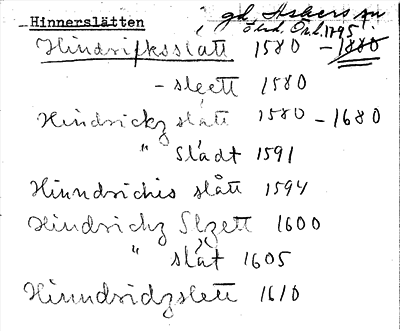 Hinnerslätten
gd Askers sn
Hindrikssslätt 1580 - 1880
- sleett 1580
Hindrickz slätt 1580 - 1680
" Slädt 1591
Hinndrichis slått 1594
Hindrichz Slzett 1600
" slät 1605
Hinndridzslett 1610